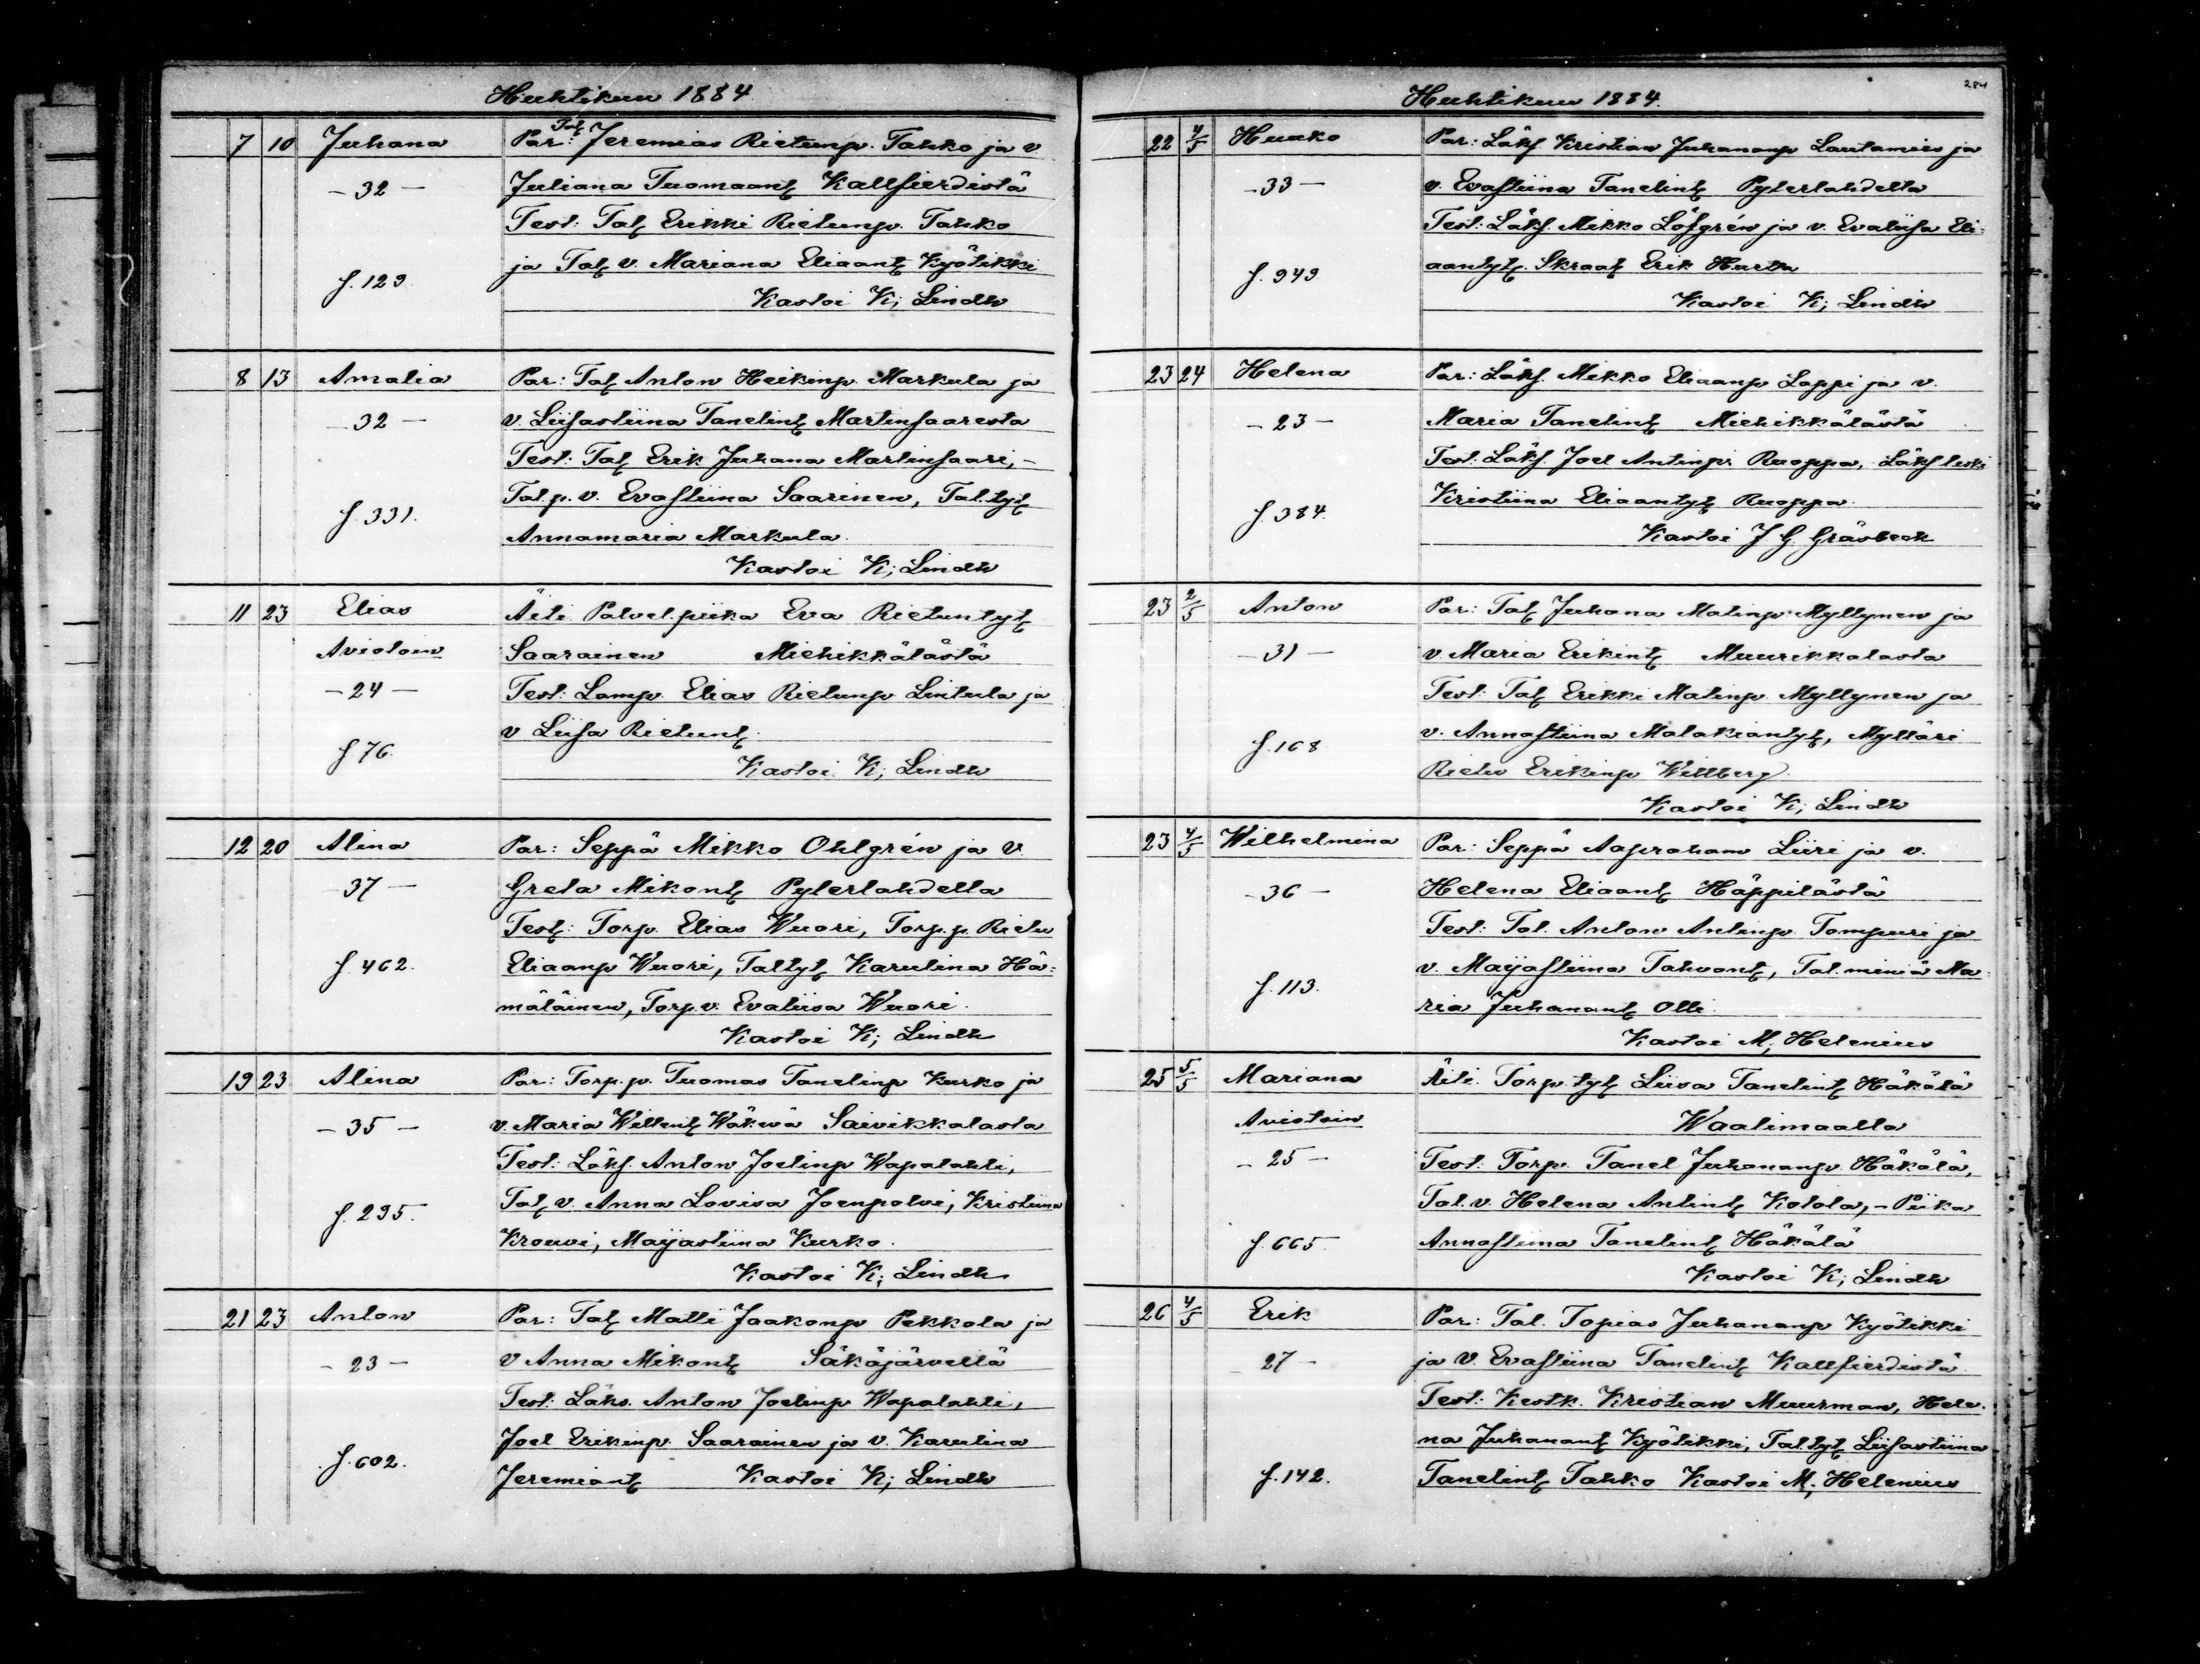 Huhtikuu 1884
7 10 Juhana Par: Tal. Jeremias Rietunp. Tahko ja v.
- 32 - Juliana Tuomaant. Kallfierdistä
Test: Tal. Erikki Rietunp. Tahko
ja Tal. v. Mariana Eliaant. Kyötikki
f. 129. Kastoi K; Lindh
8 13 Amalia Par: Tal. Anton Heikinp. Markula ja
32 - v. Liisastiina Tanelint. Martinsaaresta
Test: Tal. Erik Juhana Martinsaari, -
Tal. p. v. Evastiina Saarinen, Tal. tyt.
f. 331. Annamaria Markula.
Kastoi K; Lindh
11 23 Elias Äiti Palvel. piika Eva Rietuntyt.
Aviotoin Saarainen Miehikkälästä
- 24 - Test: Lamp. Elias Rietunp. Lintula ja
v Liisa Rietunt.
f 76. Kastoi K; Lindh
12 20 Alina Par: Seppä Mikko Ohlgrén ja v.
37 - Greta Mikont. Pyterlahdella
Test: Torp. Elias Wuori, Torp. p. Rietu
f. 462. Eliaanp Wuori, Tal tyt. Karulina Hä-
mäläinen, Torp. v. Evaliisa Wuori.
Kastoi K; Lindh
19 23 Alina Par: Torp. p. Tuomas Tanelinp Kurko ja
- 35 - v. Maria Willent. Wäkevä Saivikkalasta
Test: Läks. Anton Joelinp Wapalahti,
f. 295. Tal. v. Anna Lovisa Joenpolvi, Kristiina
Krouvi, Maijastiina Kurko.
Kastoi K; Lindh
21 23 Anton Par: Tal. Matti Jaakonp Pekkola ja
- 23 - v Anna Mikont. Säkäjärvellä
Test: Läks. Anton Joelinp Wapalahti,
f. 602. Joel Erikinp. Saarainen ja v. Karulina
Jeremiant. Kastoi K; Lindh
284
Huhtikuu 1884.
22 4/5 Huuko Par: Läks. Kristian Juhananp Lautamies ja
- 33 - v. Evastiina Tanelint. Pyterlahdella
Test: Läks. Mikko Löfgrén ja v. Evaliisa Eli-
f. 949. aantyt. Skraat. Erik Hurtta
Kastoi K; Lindh
23 24 Helena Par: Läks. Mikko Eliaanp Lappi ja v.
- 23 - Maria Tanelint. Miehikkälästä
Test: Läks Joel Antinp. Ruoppa, Läks leski
f. 384. Kristiina Eliaantyt. Ruoppa.
Kastoi J. G. Gräsbeck
23 2/5 Anton Par: Tal. Juhana Matinp. Myllynen ja
- 31 - v Maria Erikint. Muurikkalasta
Test: Tal. Erikki Matinp. Myllynen ja
f. 168 v. Annastiina Malakiantyt., Mylläri
Rietu Erikinp Willberg.
Kastoi K; Lindh
23 4/5 Wilhelmina Par: Seppä Aapraham Liiri ja v.
- 36 - Helena Eliaant. Häppilästä
Test: Tal. Anton Antinp. Tompuri ja
f. 113. v. Maijastiina Tahvont., Tal. miniä Ma-
ria Juhanant. Olli.
Kastoi M; Helenius
25 5/5 Mariana Äiti Torp. tyt. Liisa Tanelint. Häkälä
Aviotoin Waalimaalla
- 25 - Test: Torp. Tanel Juhananp. Häkälä,
Tal. v. Helena Antint. Kotola, - Piika
f. 665. Annastiina Tanelint. Häkälä
Kastoi K; Lindh
26 4/5 Erik Par: Tal. Topias Juhananp Kyötikki
27 - ja v. Evastiina Tanelint. Kallfierdistä
Test: Kestk. Kristian Muurman, Hele-
na Juhanant. Kyötikki, Tal. tyt. Liisastiina
f. 142. Tanelint. Tahko Kastoi M; Helenius